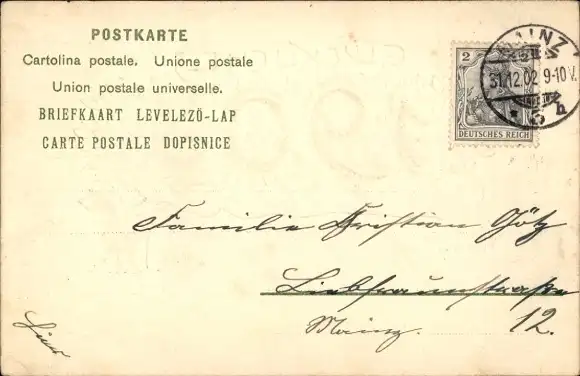 POSTKARTE
Cartolina postale. Unione postale
Union postale universelle.
BRIEFKAART LEVELEZÖ-LAP
CARTE POSTALE DOPISNICE
2
DEUTSCHES REICH
MAINZ
31.12.02 9-10V.
* 5 h
Familie Kristian Götz
Liebfraunstraße
Mainz. 12.